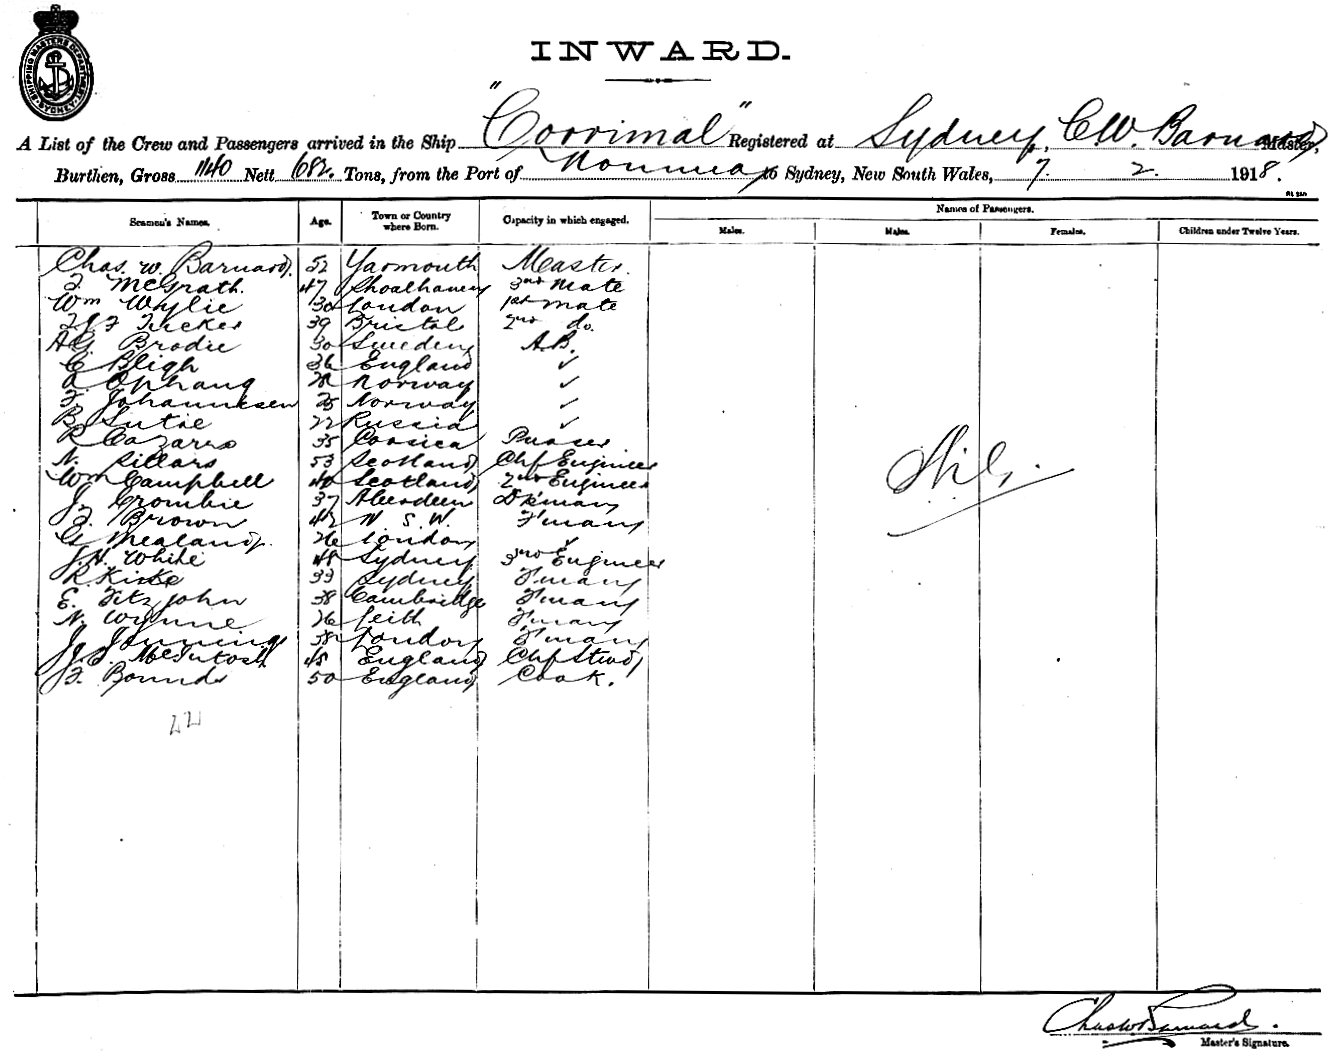 SHIPPING MASTERS DEPARTMENT SYDNEY
INWARD.
A List of the Crew and Passengers arrived in the Ship "Corrimal" Registered at Sydney, C.W. Barnard Master,
Burthen, Gross 1140 Nett 682. Tons, from the Port of Noumea to Sydney, New South Wales, 7. 2. 1918.
Seamen's Names. Age. Town or Country where Born. Capacity in which engaged. Names of Passengers.
Males. Males. Females. Children under Twelve Years.
Chas. W. Barnard. 52 Yarmouth Master.
McGrath. 47 Shoalhaven 3rd Mate
Wm Wylie 30 London 1st Mate
Tucker 39 Bristol 2nd do.
A.G. Brodie 30 Sweden A.B.
C. Bligh 36 England ✓
A Ophaug 28 Norway ✓
F. Johannesen 25 Norway ✓
B. Sutie 22 Russia ✓
R Cazares 35 Corsica Purser
N. Sillars 53 Scotland Chf Engineer
Wm Campbell 40 Scotland 2nd Engineer
J. Crombie 37 Aberdeen Dkman
Brown 42 N. S. W. F'man
G. Mealand. 26 London ✓
J.H. White 48 Sydney 3rd Engineer
R. Kirke 33 Sydney F'man
E. Fitzjohn 38 Cambridge F'man
N. Wynne 26 Leith F'man
J. Jennings 38 London F'man
McIntosh 48 England Chf Stwd
Bounds 50 England Cook.
22
Nil.
Chas W Barnard.
Master's Signature.